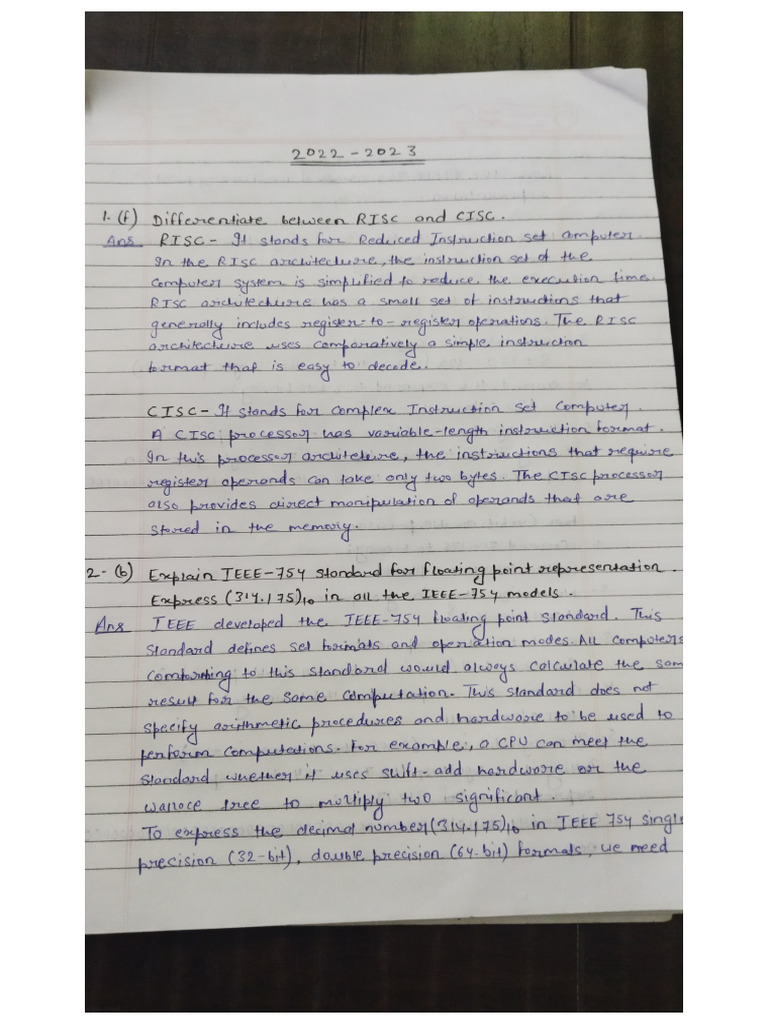 2022 - 2023
1. (f) Differentiate between RISC and CISC.
Ans RISC - It stands for Reduced Instruction set Computer.
In the RISC architecture, the instruction set of the
computer system is simplified to reduce the execution time.
RISC architecture has a small set of instructions that
generally includes register-to-register operations. The RISC
architecture uses comparatively a simple instruction
format that is easy to decode.
CISC - It stands for Complex Instruction Set Computer.
A CISC processor has variable-length instruction format.
In this processor architecture, the instructions that require
register operands can take only two bytes. The CISC processor
also provides direct manipulation of operands that are
stored in the memory.
2- (b) Explain IEEE-754 standard for floating point representation.
Express (314.175)10 in all the IEEE-754 models.
Ans IEEE developed the IEEE-754 floating point standard. This
standard defines set formats and operation modes. All computers
comforming to this standard would always calculate the same
result for the same computation. This standard does not
specify arithmetic procedures and hardware to be used to
perform computations. For example, a CPU can meet the
standard whether it uses shift-add hardware or the
wallace tree to multiply two significant.
To express the decimal number (314.175)10 in IEEE 754 single
precision (32-bit), double precision (64-bit) formats, we need